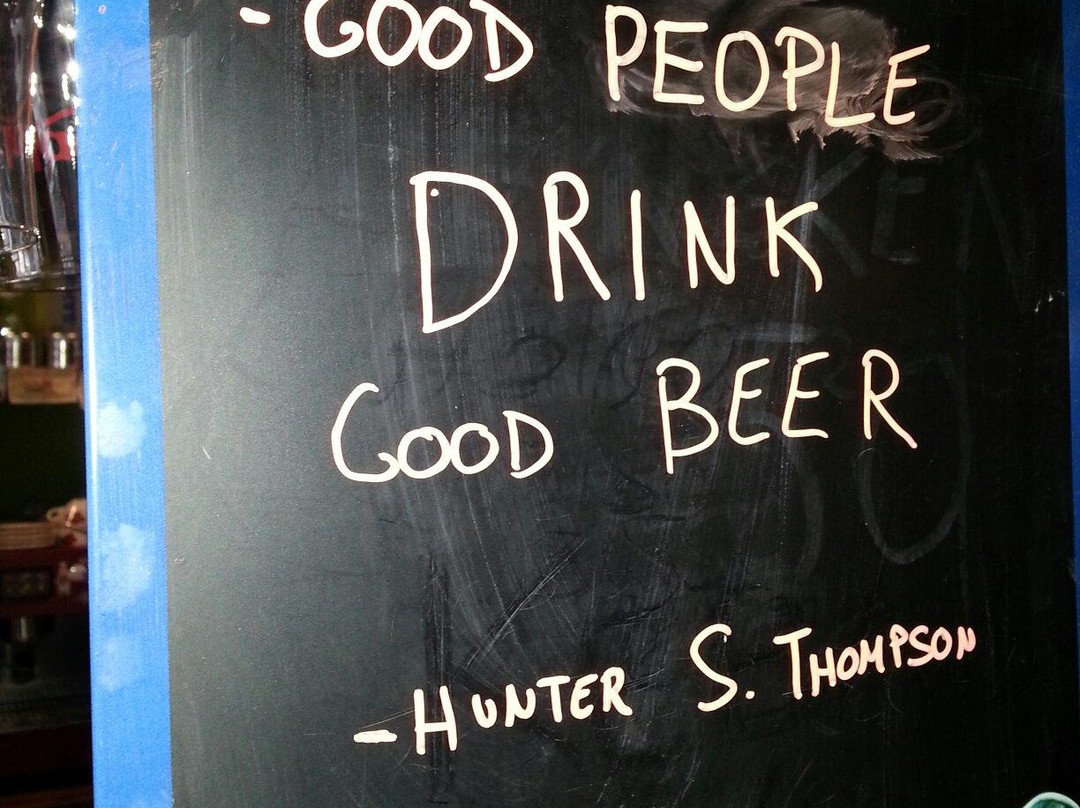 - GOOD PEOPLE
DRINK
GOOD BEER
- HUNTER S. THOMPSON